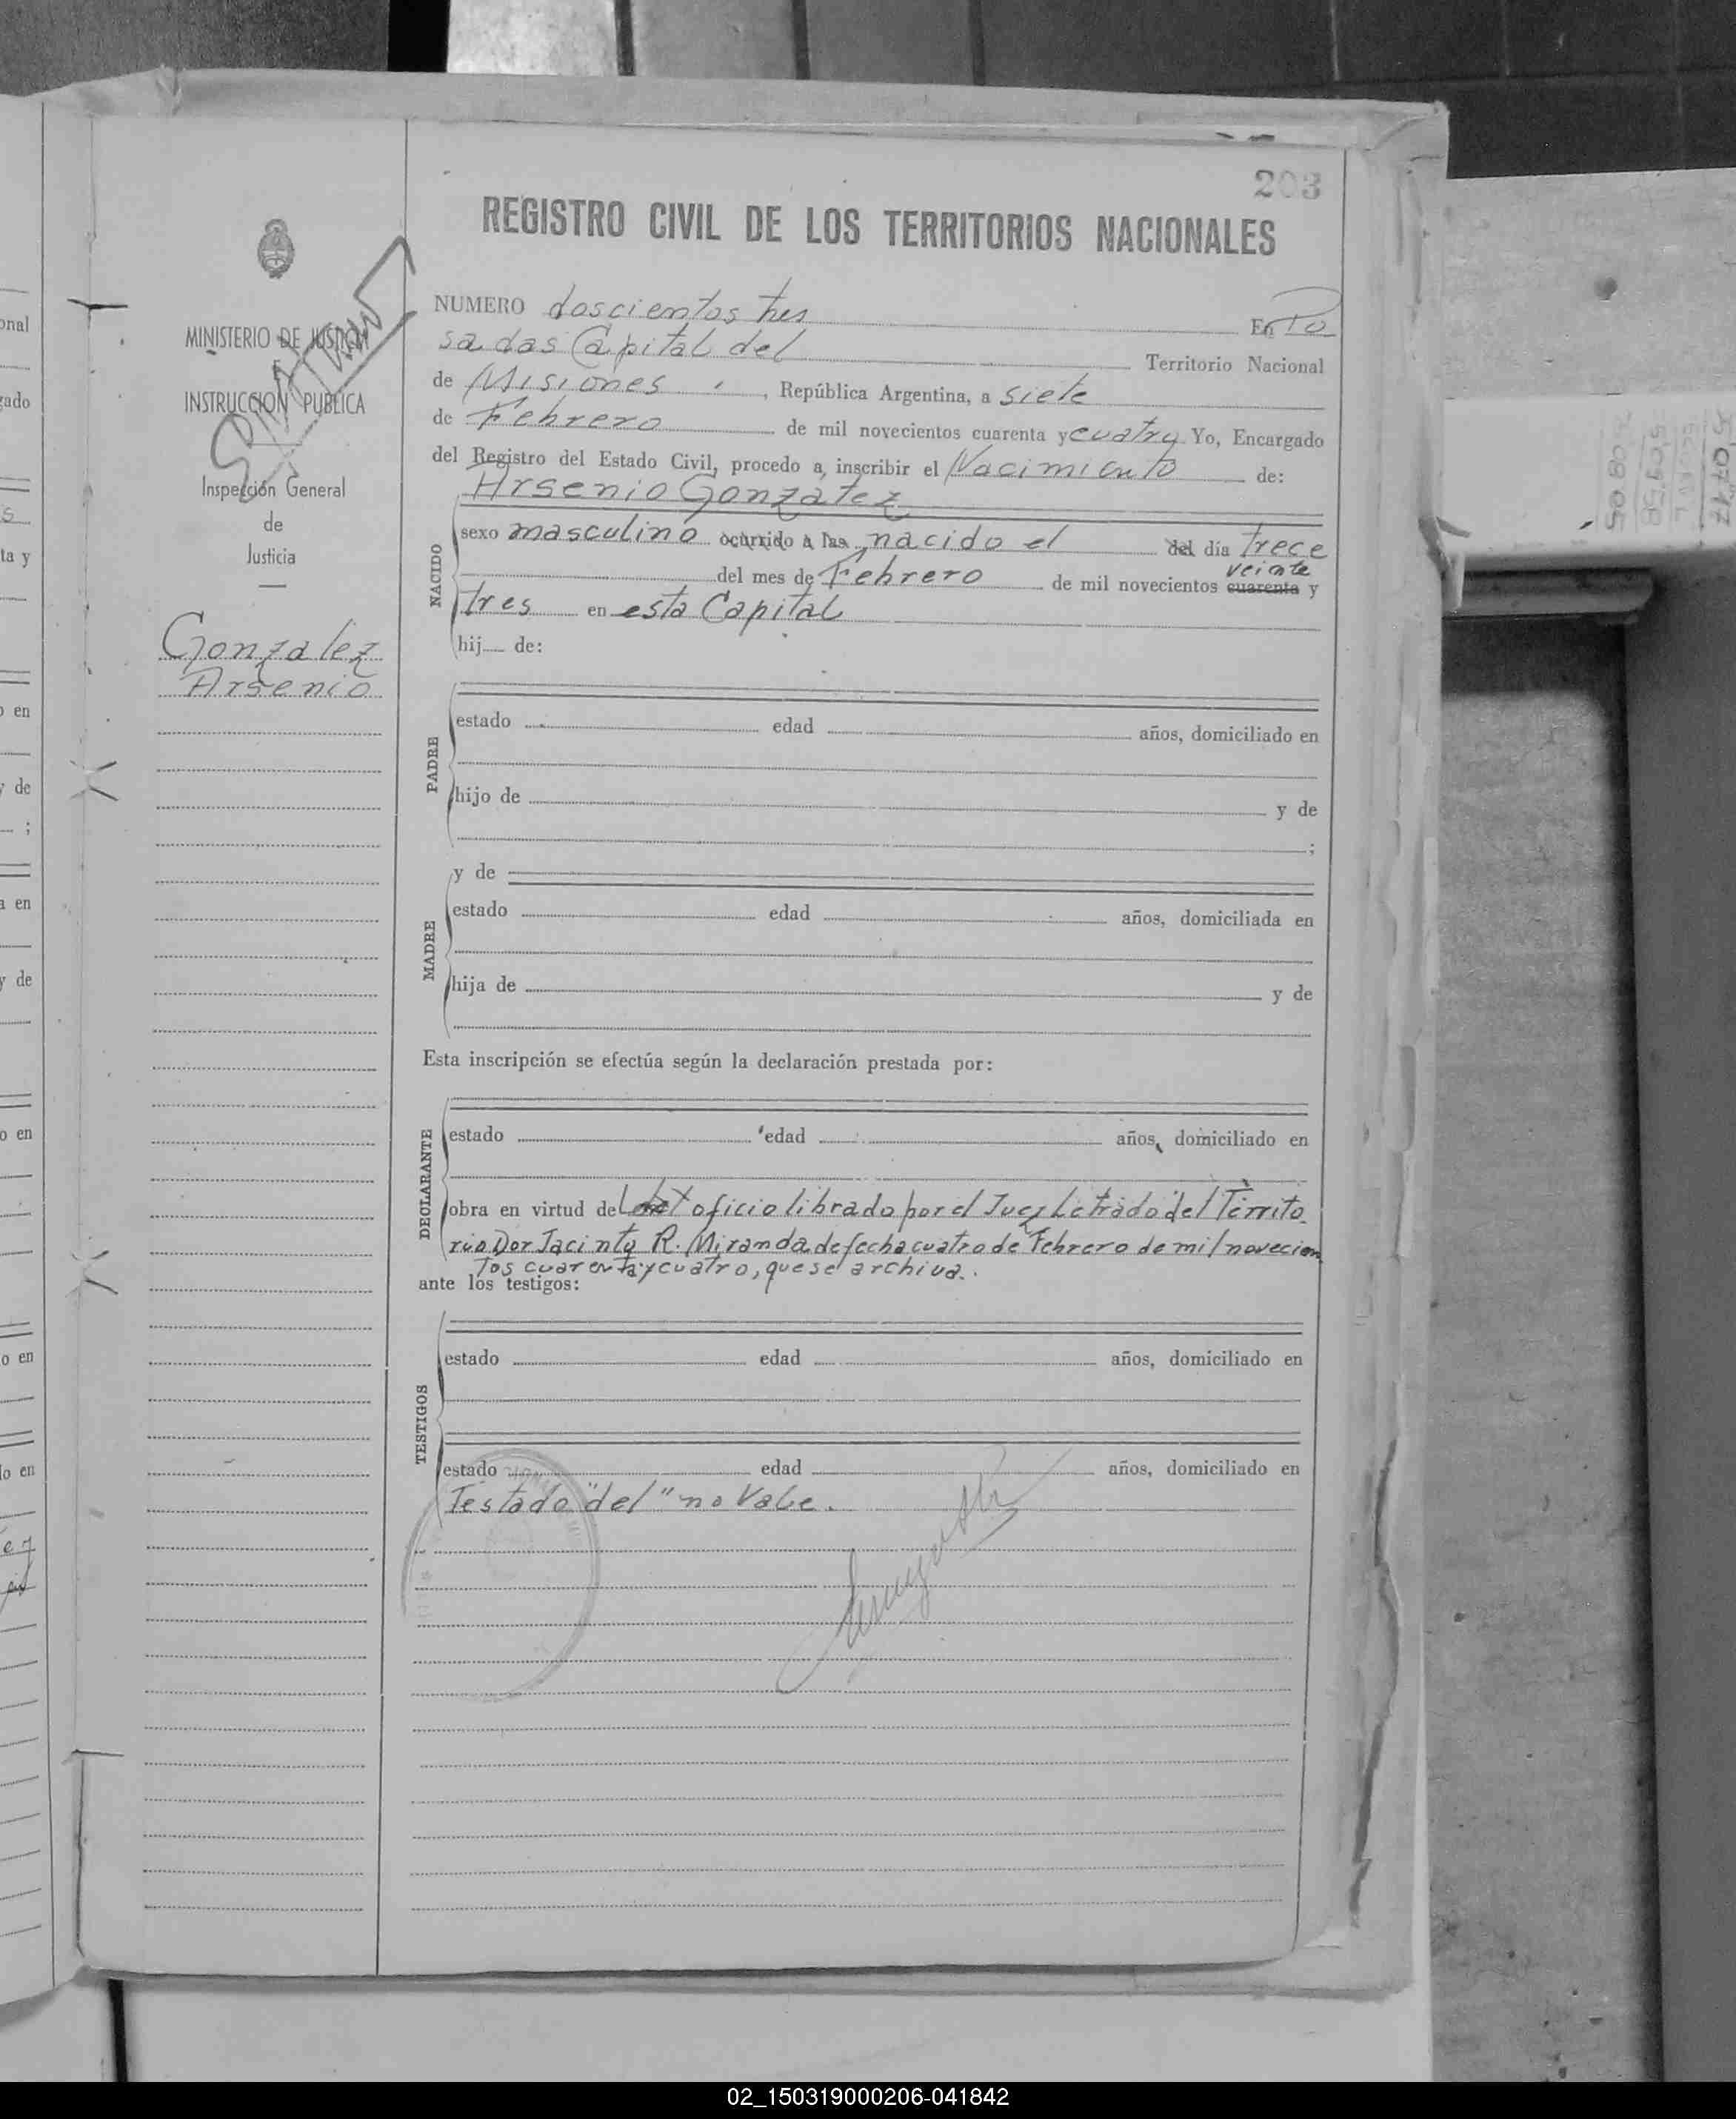 203
REGISTRO CIVIL DE LOS TERRITORIOS NACIONALES
MINISTERIO DE JUSTICIA
E
INSTRUCCION PUBLICA
Inspección General
de
Justicia
Gonzalez
Arsenio
NUMERO doscientos tres En Po
sadas Capital del Territorio Nacional
de Misiones, República Argentina, a siete
de Febrero de mil novecientos cuarenta y cuatro Yo, Encargado
del Registro del Estado Civil, procedo a inscribir el Nacimiento de:
Arsenio Gonzalez
NACIDO
sexo masculino ocurrido a las nacido el del día trece
veinte
del mes de Febrero de mil novecientos cuarenta y
tres en esta Capital
hij de:
PADRE
estado edad años, domiciliado en
hijo de y de
;
MADRE
y de
estado edad años, domiciliada en
hija de y de
Esta inscripción se efectúa según la declaración prestada por:
DECLARANTE
estado edad años, domiciliado en
obra en virtud del oficio librado por el Juez Letrado del Territo
rio Dor Jacinto R. Miranda de fecha cuatro de Febrero de mil novecien
tos cuarenta y cuatro, que se archiva.
ante los testigos:
TESTIGOS
estado edad años, domiciliado en
estado edad años, domiciliado en
Testado "del" no Vale.
02_150319000206-041842